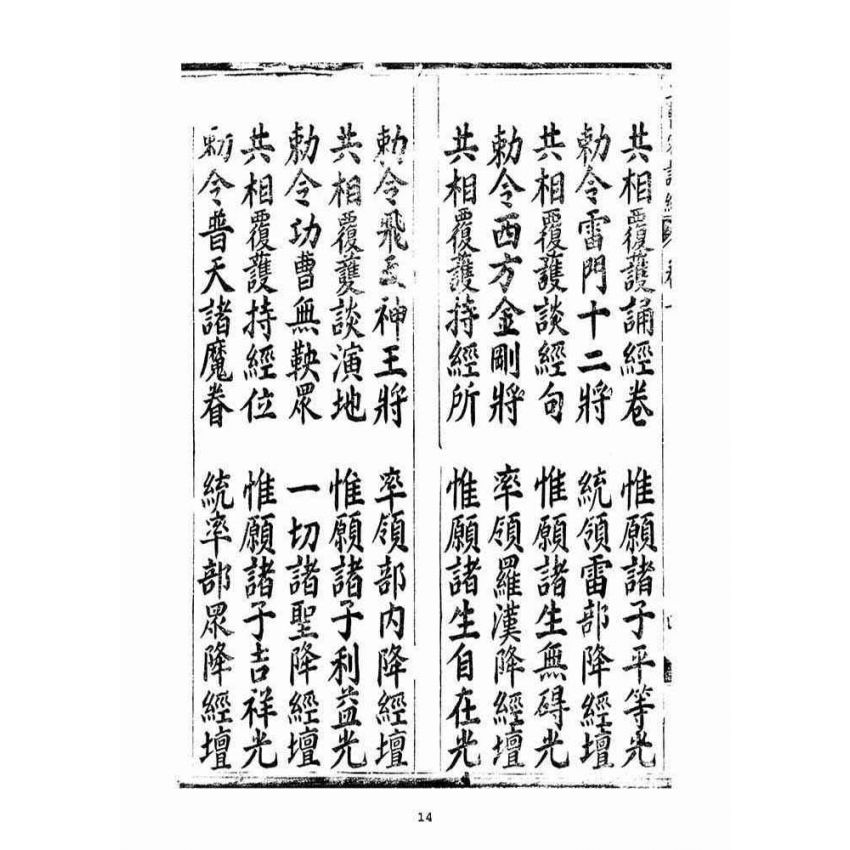 共相覆護誦經卷　惟願諸子平等光
勅令雷門十二將　統領雷部降經壇
共相覆護談經句　惟願諸生無碍光
勅令西方金剛將　率領羅漢降經壇
共相覆護持經所　惟願諸生自在光
勅令飛天神王將　率領部內降經壇
共相覆護談演地　惟願諸子利益光
勅令功曹無鞅眾　一切諸聖降經壇
共相覆護持經位　惟願諸子吉祥光
勅令普天諸魔眷　統率部眾降經壇
14